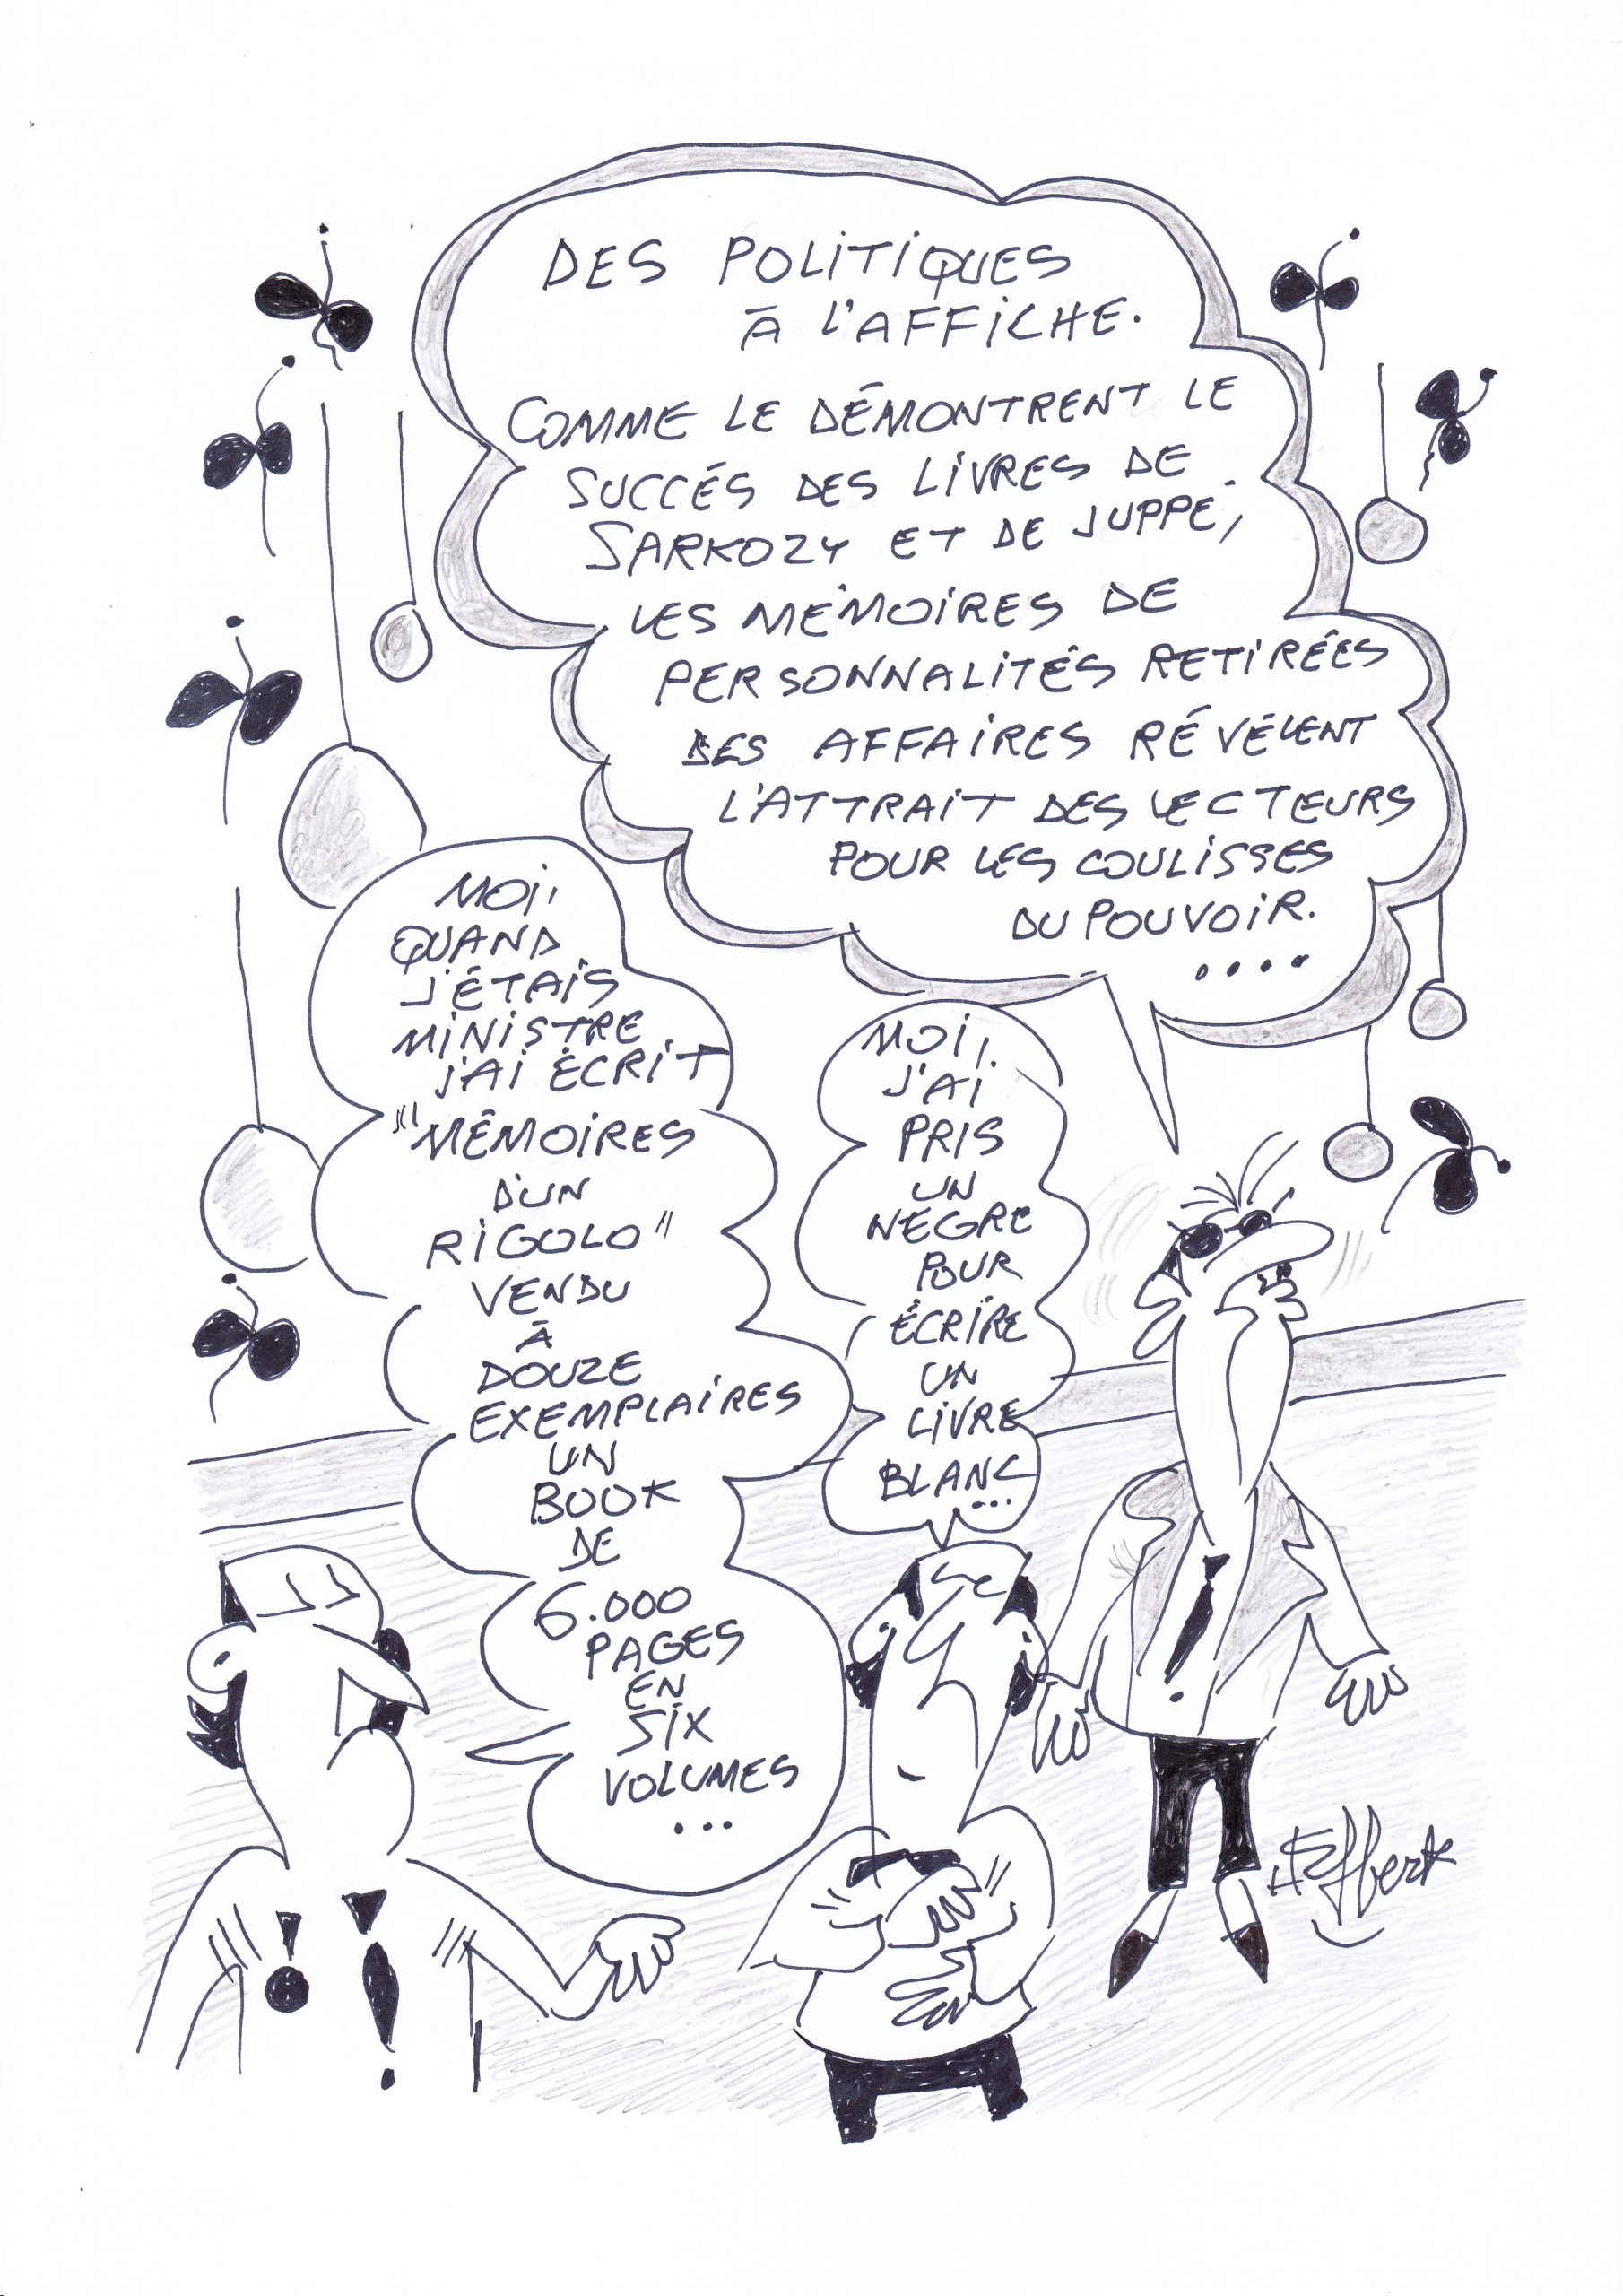 DES POLITIQUES
À L'AFFICHE.
COMME LE DÉMONTRENT LE
SUCCÉS DES LIVRES DE
SARKOZY ET DE JUPPÉ,
LES MÉMOIRES DE
PERSONNALITÉS RETIRÉES
DES AFFAIRES RÉVÉLENT
L'ATTRAIT DES LECTEURS
POUR LES COULISSES
DU POUVOIR.
....
MOI,
QUAND
J'ÉTAIS
MINISTRE
J'AI ÉCRIT
"MÉMOIRES
D'UN
RIGOLO"
VENDU
À
DOUZE
EXEMPLAIRES
UN
BOOK
DE
6.000
PAGES
EN
SIX
VOLUMES
...
MOI,
J'AI
PRIS
UN
NÉGRE
POUR
ÉCRIRE
UN
LIVRE
BLANC
...